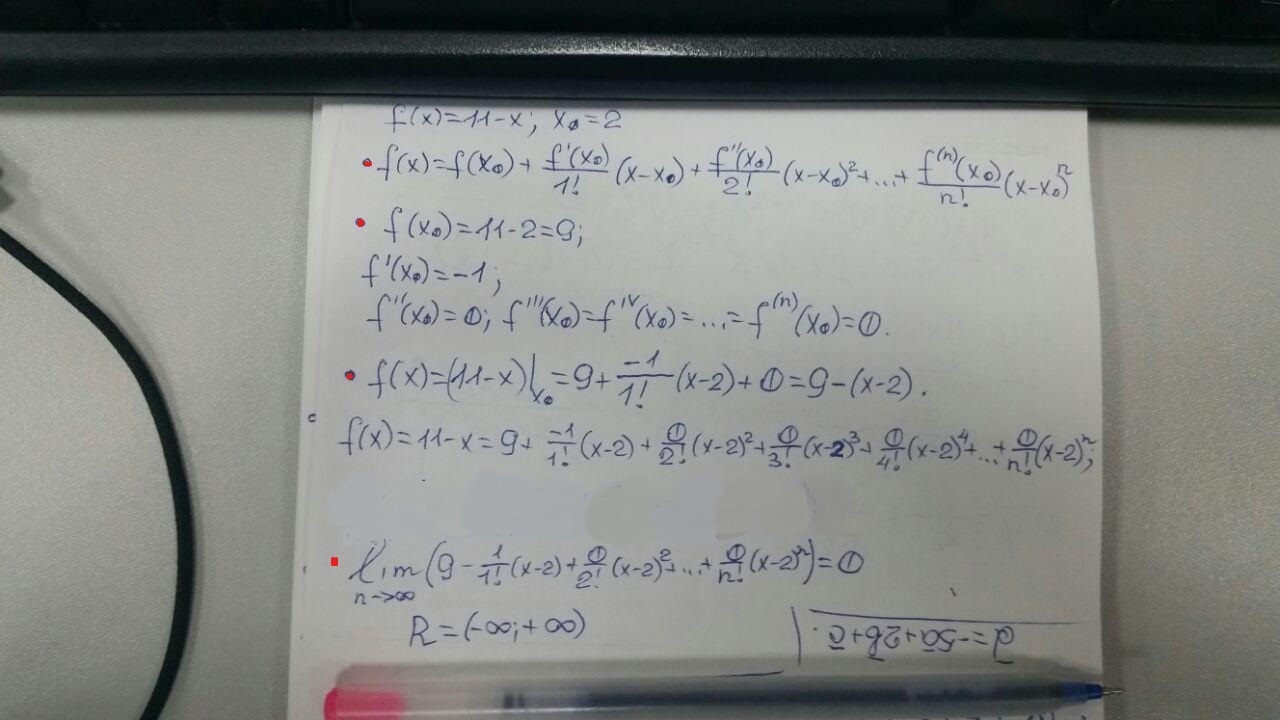 f(x)=11-x; x₀=2
• f(x)=f(x₀)+ f'(x₀)/1! (x-x₀)+ f''(x₀)/2! (x-x₀)²+...+ f⁽ⁿ⁾(x₀)/n! (x-x₀)ⁿ
• f(x₀)=11-2=9;
f'(x₀)=-1;
f''(x₀)=0; f'''(x₀)=f^IV(x₀)=...=f⁽ⁿ⁾(x₀)=0.
• f(x)=(11-x)|x₀ =9+ -1/1! (x-2)+0=9-(x-2).
f(x)=11-x=9+ -1/1! (x-2)+ 0/2! (x-2)²+ 0/3! (x-2)³+ 0/4! (x-2)⁴+...+ 0/n! (x-2)ⁿ;
lim n→∞ (9- 1/1! (x-2)+ 0/2! (x-2)²+...+ 0/n! (x-2)ⁿ)=0
R=(-∞;+∞)
d̄=-5ā+2b̄+c̄.